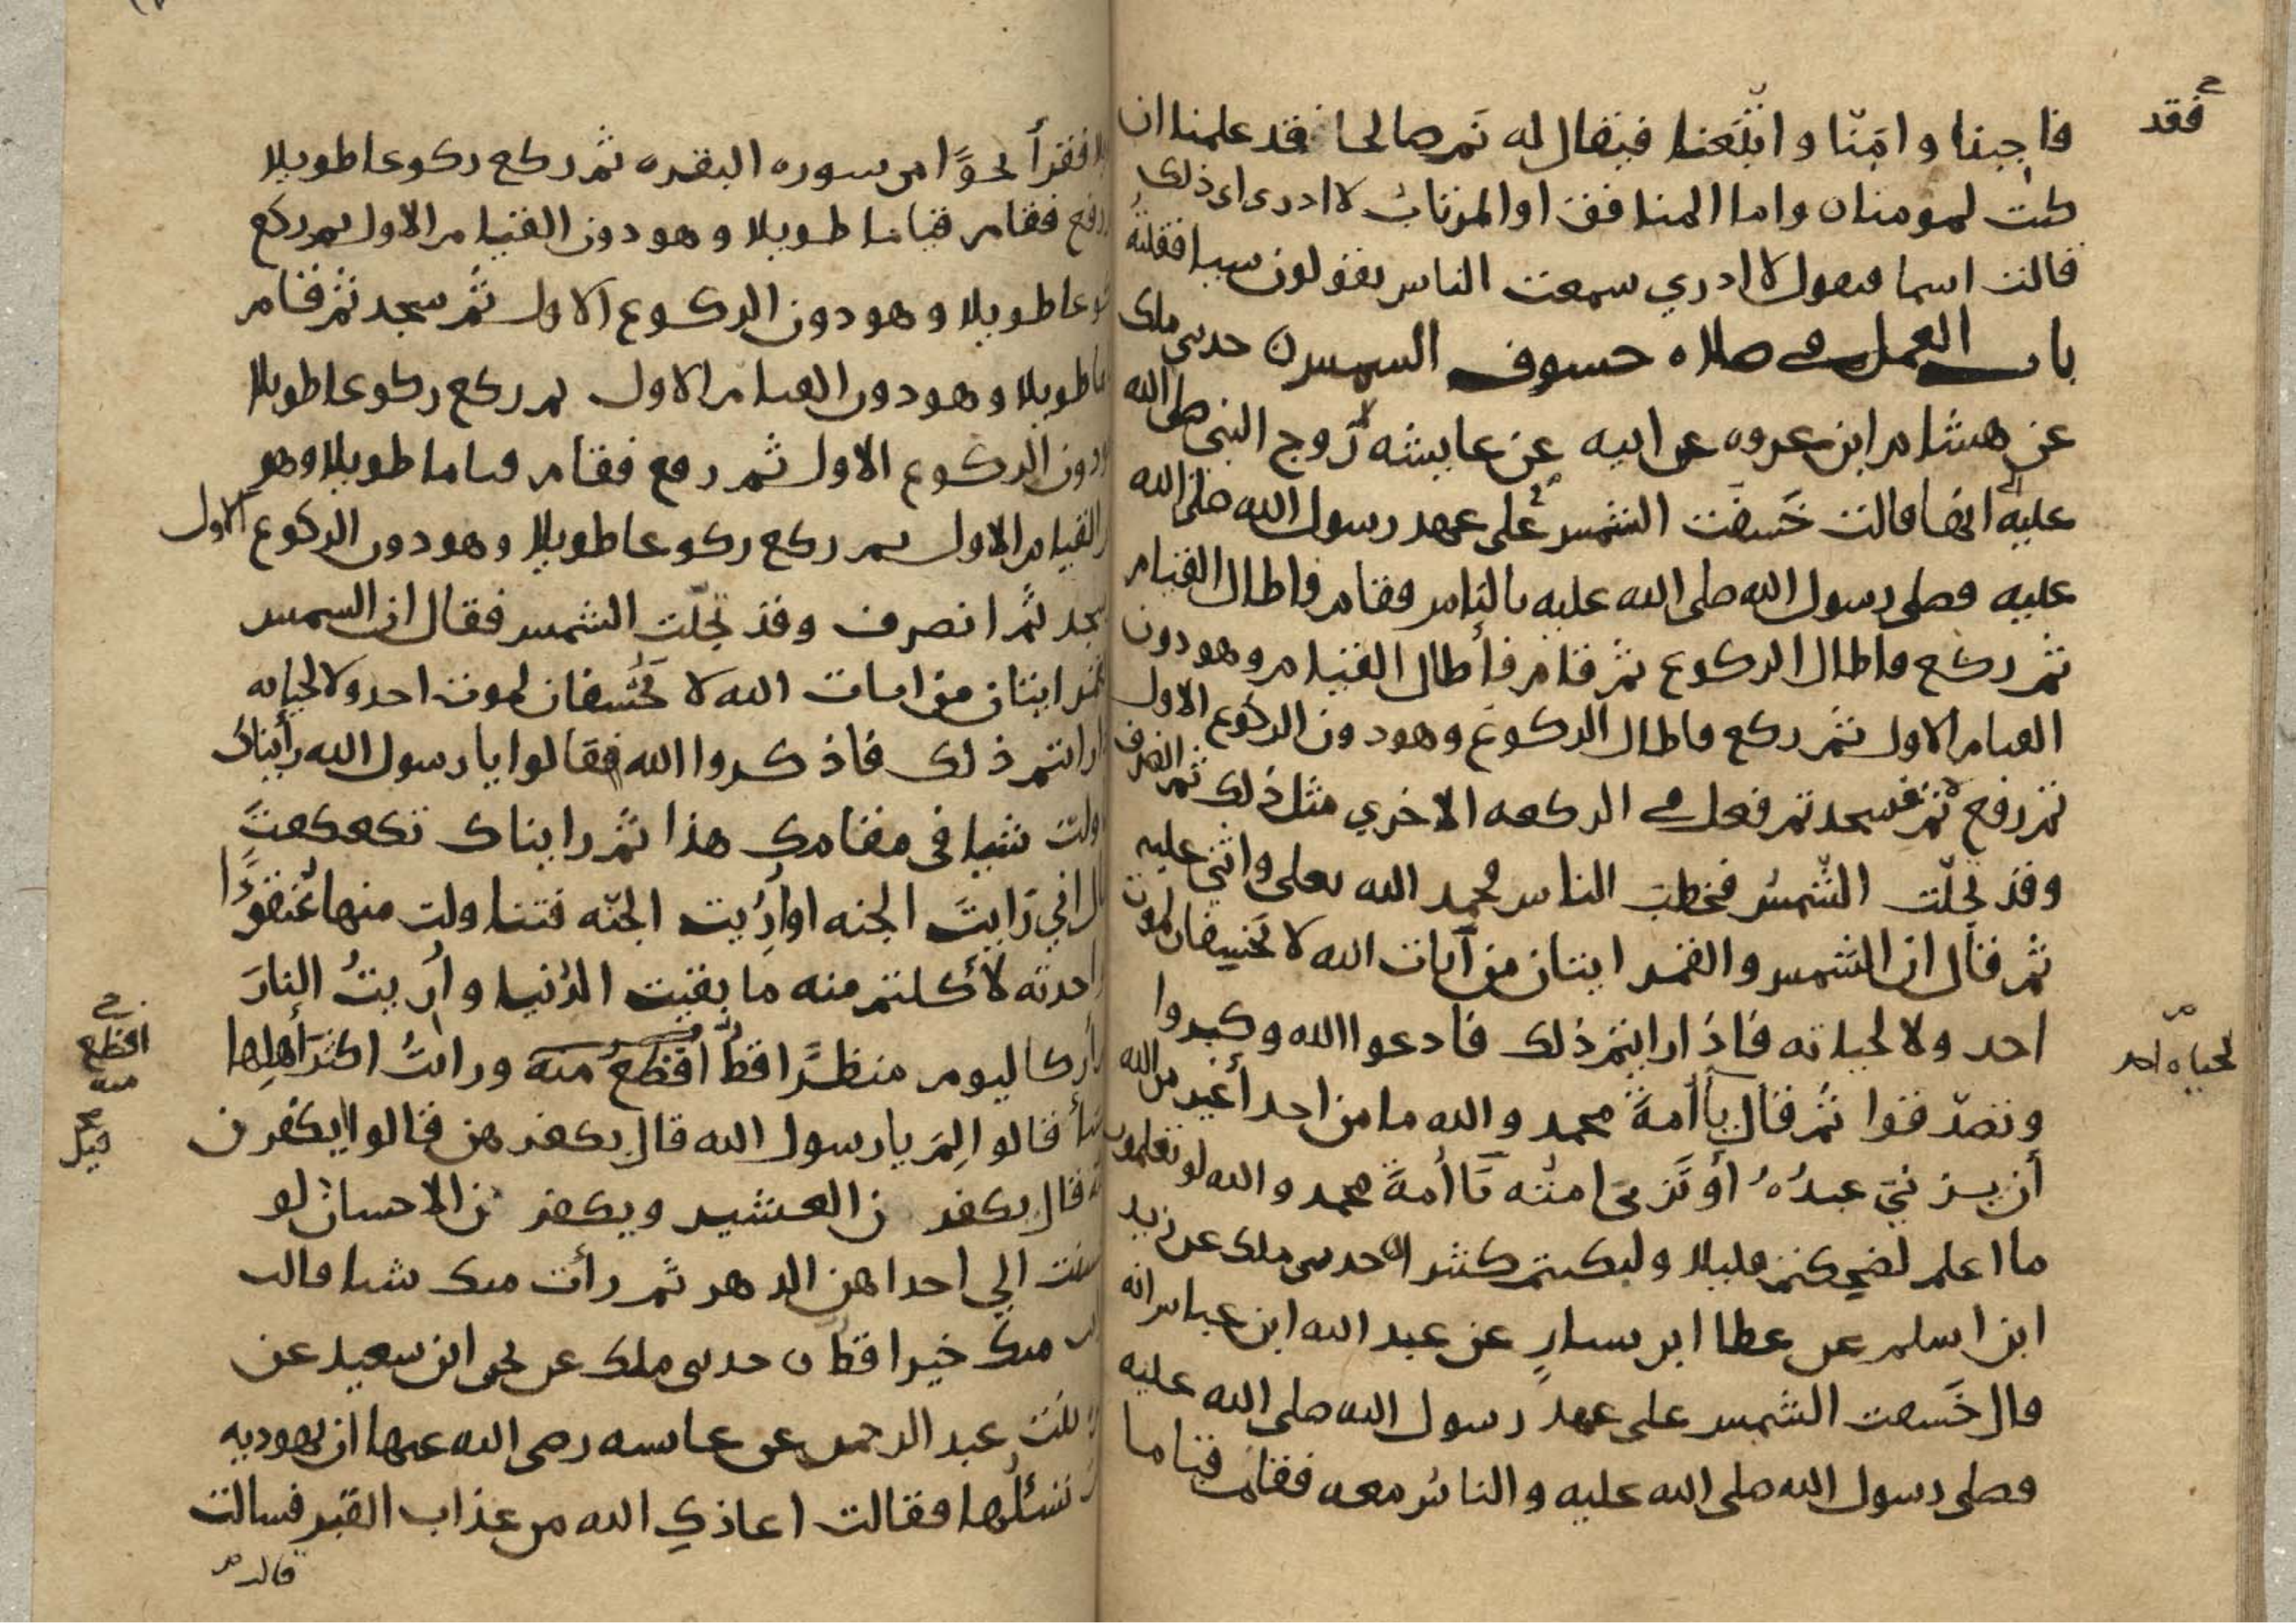 فقد
فاجبنا وامَنّا واتّبَعنا فيقال له نَم صالحا فقد علمنا ان
كنت لمومنا ن واما المنافق او المرتاب لا ادرى اى ذلك
قالت اسما فيقول لا ادري سمعت الناس يقولون شيا فقلتُه
باب العمل في صلاه خسوف الشمس ن حدثنى ملك
عن هشام ابن عروه عن ابيه عن عايشه زَوج النبى صلى الله
عليه انها قالت خَسفَت الشمس على عهد رسول الله صلى الله
عليه فصلى رسول الله صلى الله عليه بالناس فقام فاطال القيام
ثم ركع فاطال الركوع ثم قام فأطال القيام وهو دون
القيام الاول ثم ركع فاطال الركوع وهو دون الركوع الاول
ثم رفع فسجد ثم فعل في الركعه الاخري مثل ذلك ثم انصرف
وقد تجلّت الشّمسُ فخطب الناس فحمد الله تعلى واثنى عليه
ثم قال ان الشمس والقمر ايتان من آيات الله لا تخسفان لموت
احد ولا لحياته فاذا رايتم ذلك فادعوا الله وكبروا
لحياه احد
وتصدّقوا ثم قال يا أمةَ محمد والله ما من احد أغير من الله
أن يزنيَ عبدُهُ أو تَزنىَ امتُه يَا أُمةَ محمد والله لو تعلمون
ما اعلم لضحكتم قليلا ولبكيتم كثيرا ن حدثنى ملك عن زيد
ابن اسلم عن عطا ابن يسارٍ عن عبد الله ابن عباس انه
قال خَسفت الشمس على عهد رسول الله صلى الله عليه
فصلى رسول الله صلى الله عليه والناسُ معه فقام قياما
فقرأ نحوًا من سوره البقره ثم ركع ركوعا طويلا
رفع فقام قياما طويلا وهو دون القيام الاول ثم ركع
عا طويلا وهو دون الركوع الاول ثم سجد ثم قام
ما طويلا وهو دون القيام الاول ثم ركع ركوعا طويلا
دون الركوع الاول ثم رفع فقام قياما طويلا وهو
القيام الاول ثم ركع ركوعا طويلا وهو دون الركوع الاول
سجد ثم انصرف وقد تجلّت الشمس فقال ان الشمس
ايتان من ايات الله لا تخسفان لموت احد ولا لحياته
رايتم ذلك فاذكروا الله فقالوا يا رسول الله رأيناك
ولت شيا في مقامك هذا ثم رايناك تكعكعتَ
اني رَايتَ الجنه او أُرُيت الجنّه فتناولت منها عُنقودًا
اخدته لأكلتم منه ما بقيت الدُنيا وأُريتُ النارَ
أر كاليوم منظرًا قطُّ افظعُ منه ورايتُ اكثرَ أهلِها
افظع
منه
قيل
قالوا لِمَ يا رسول الله قال بكفرهن قالوا ايكفرن
قال يكفرن العشير ويكفرن الاحسان لو
الي احداهن الدهر ثم رأت منك شيا قالت
منك خيرا قط ن حدثنى ملك عن يحيى ابن سعيد عن
بنت عبد الرحمن عن عايشه رضى الله عنها ان يهوديه
تسئلُها فقالت اعاذكِ الله من عذاب القبر فسالت